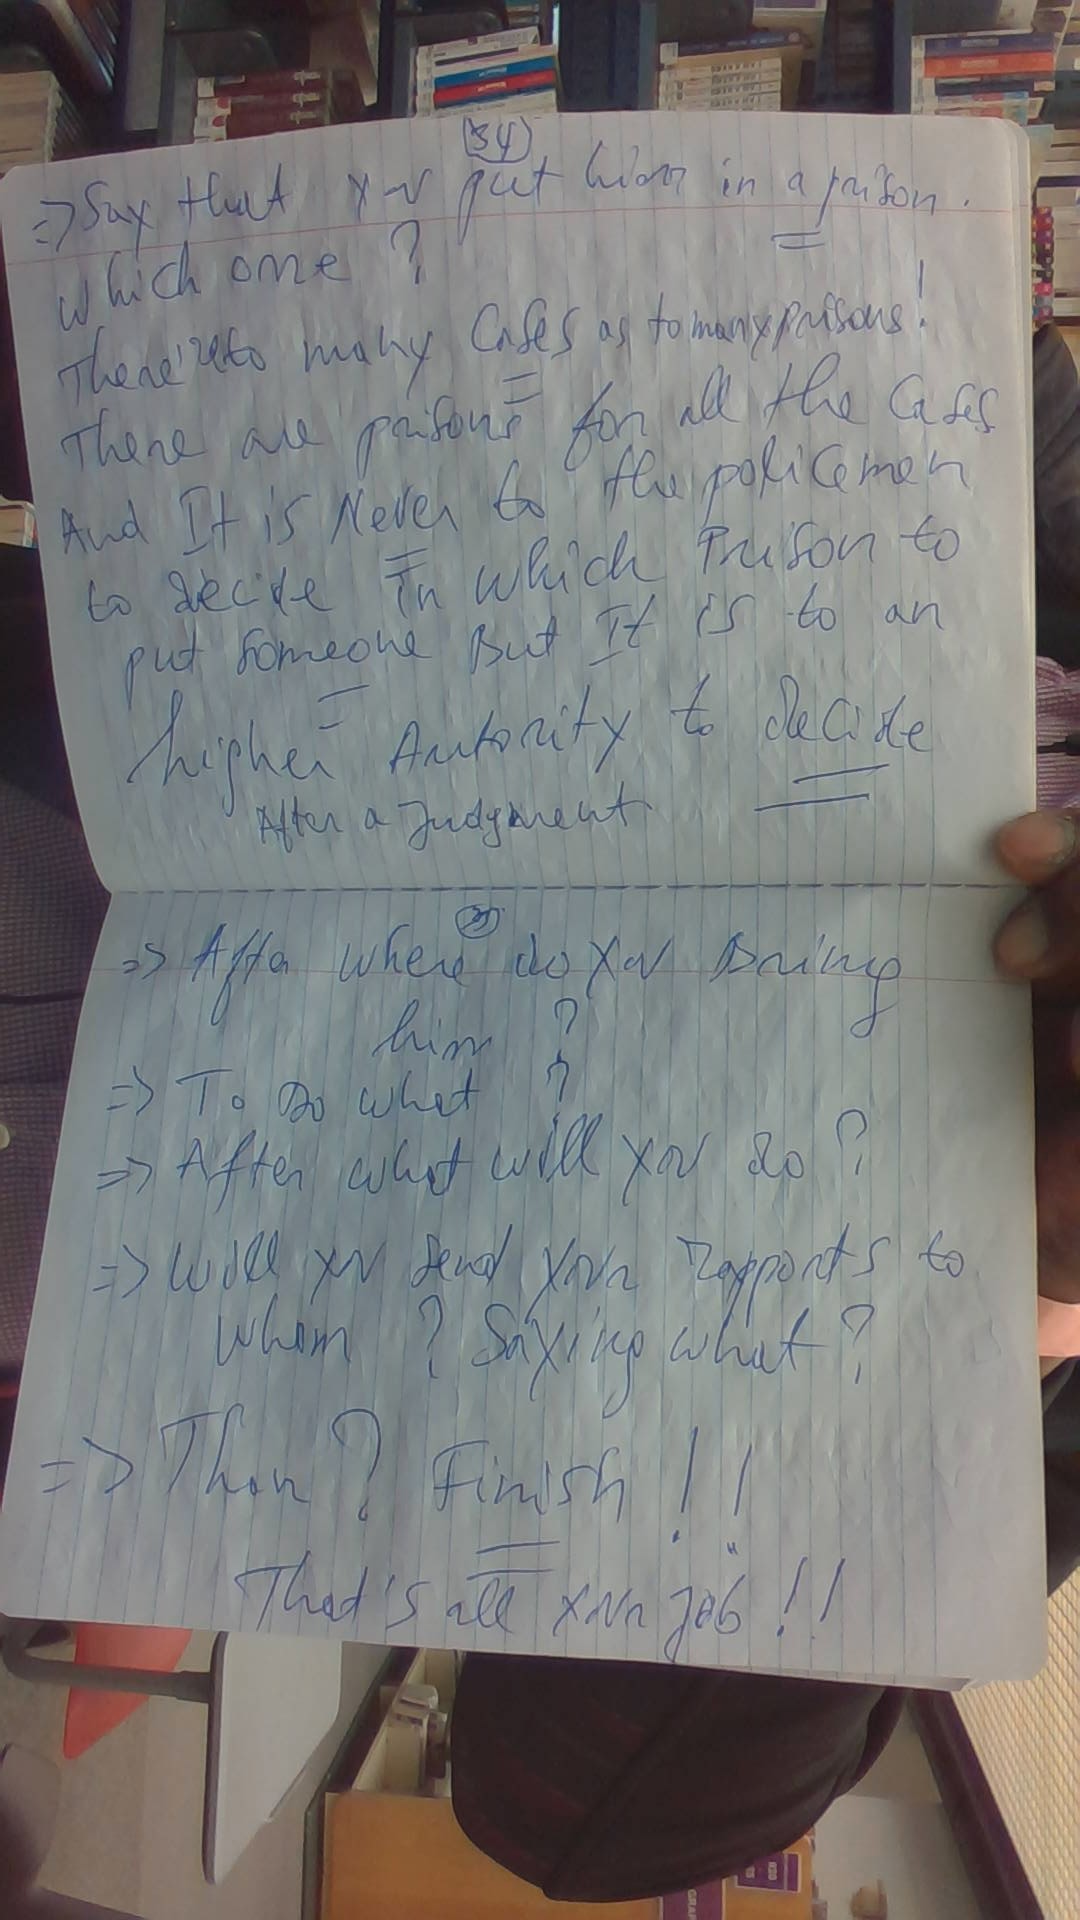 (34)
=> Say that xw put him in a prison.
which one ?
There're to many Cases as to many prisons!
There are prisons for all the Cases
And It is Never to the policemen
to decide In which Prison to
put someone But It is to an
higher Autority to decide
After a Judgment.
=> After where do xw Bring
him ?
=> To Do what ?
=> After what will xw do ?
=> will xw send xwr rapports to
whom ? Saying what ?
=> Then ? Finish !!
That's all xwr job !!